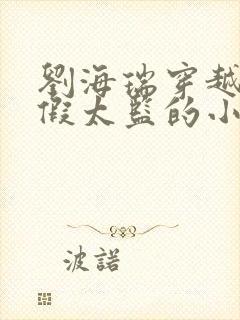 劉海瑞穿越
假太監的小
波諾